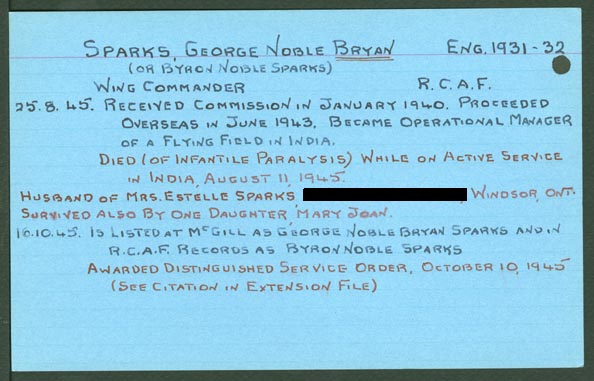 SPARKS, GEORGE NOBLE BRYAN ENG. 1931-32
(OR BYRON NOBLE SPARKS)
WING COMMANDER R.C.A.F.
25.8.45. RECEIVED COMMISSION IN JANUARY 1940. PROCEEDED
OVERSEAS IN JUNE 1943. BECAME OPERATIONAL MANAGER
OF A FLYING FIELD IN INDIA.
DIED (OF INFANTILE PARALYSIS) WHILE ON ACTIVE SERVICE
IN INDIA, AUGUST 11, 1945.
HUSBAND OF MRS. ESTELLE SPARKS, , WINDSOR, ONT.
SURVIVED ALSO BY ONE DAUGHTER, MARY JOAN.
16.10.45. IS LISTED AT MCGILL AS GEORGE NOBLE BRYAN SPARKS AND IN
R.C.A.F. RECORDS AS BYRON NOBLE SPARKS
AWARDED DISTINGUISHED SERVICE ORDER, OCTOBER 10, 1945
(SEE CITATION IN EXTENSION FILE)